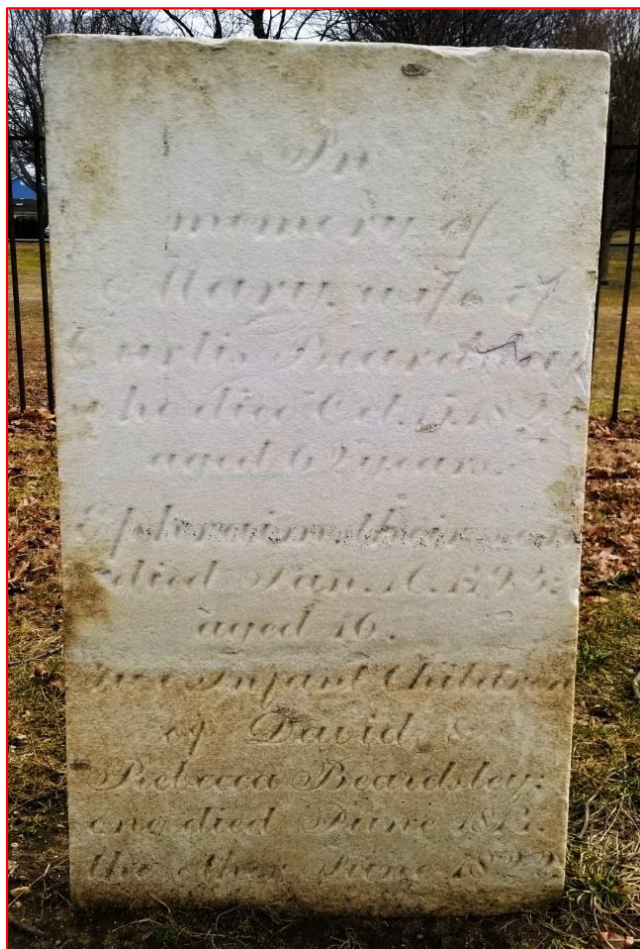 In
memory of
Mary, wife of
Curtis Beardsley
who died Oct.
aged 62 years.
Ephraim their son
died Jan. 16.
aged 16.
Two Infant Children
of David &
Rebecca Beardsley:
one died June 1813.
the other June 1822